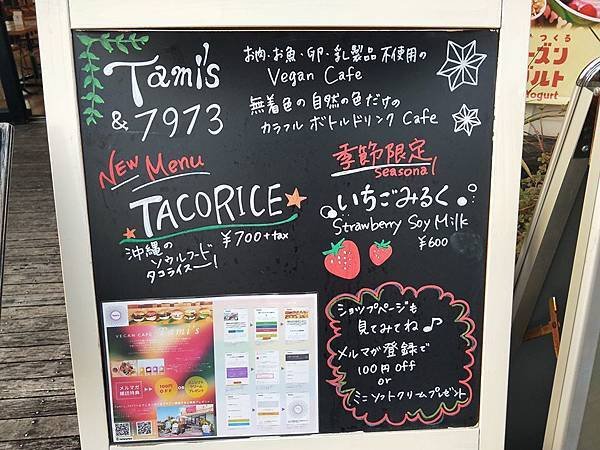 Tami's
& 7973
お肉・お魚・卵・乳製品不使用の
Vegan Cafe
無着色の自然の色だけの
カラフル ボトルドリンク Cafe
NEW Menu
TACORICE
¥700+tax
沖縄の
ソウルフード
タコライスー!
季節限定
Seasonal
いちごみるく
Strawberry Soy Milk
¥600
ショップページも
見てみてね♪
メルマガ登録で
100円 OFF
or
ミニソフトクリームプレゼント
VEGAN CAFE Tami's
メルマガ
購読特典
100円
OFF
OR
Yogurt